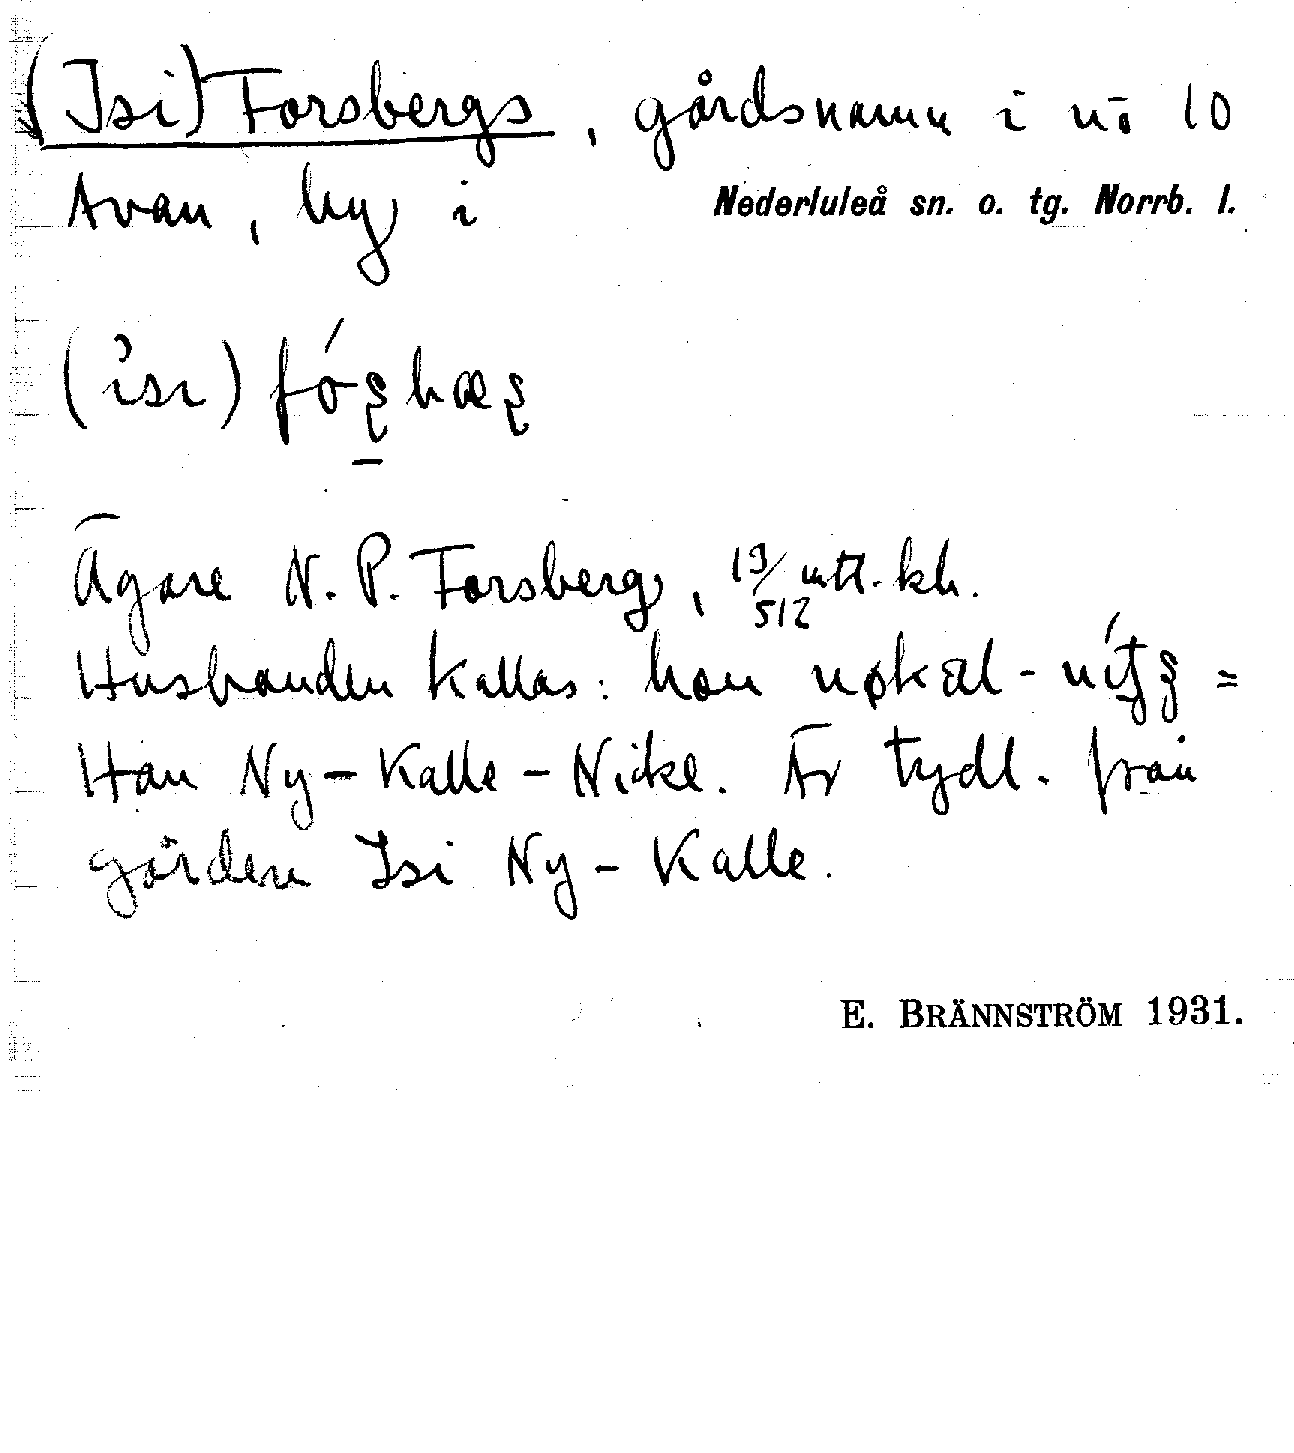 (Isi) Forsbergs, gårdsnamn i nō 10
Avan, by i Nederluleå sn. o. tg. Norrb. l.
(isi)
Ägare N. P. Forsberg, 19/512 mtl. kh.
Husbonden kallas: han
Han Ny-Kalle-Nicke. Är tydl. från
gården Isi Ny-Kalle.
E. BRÄNNSTRÖM 1931.